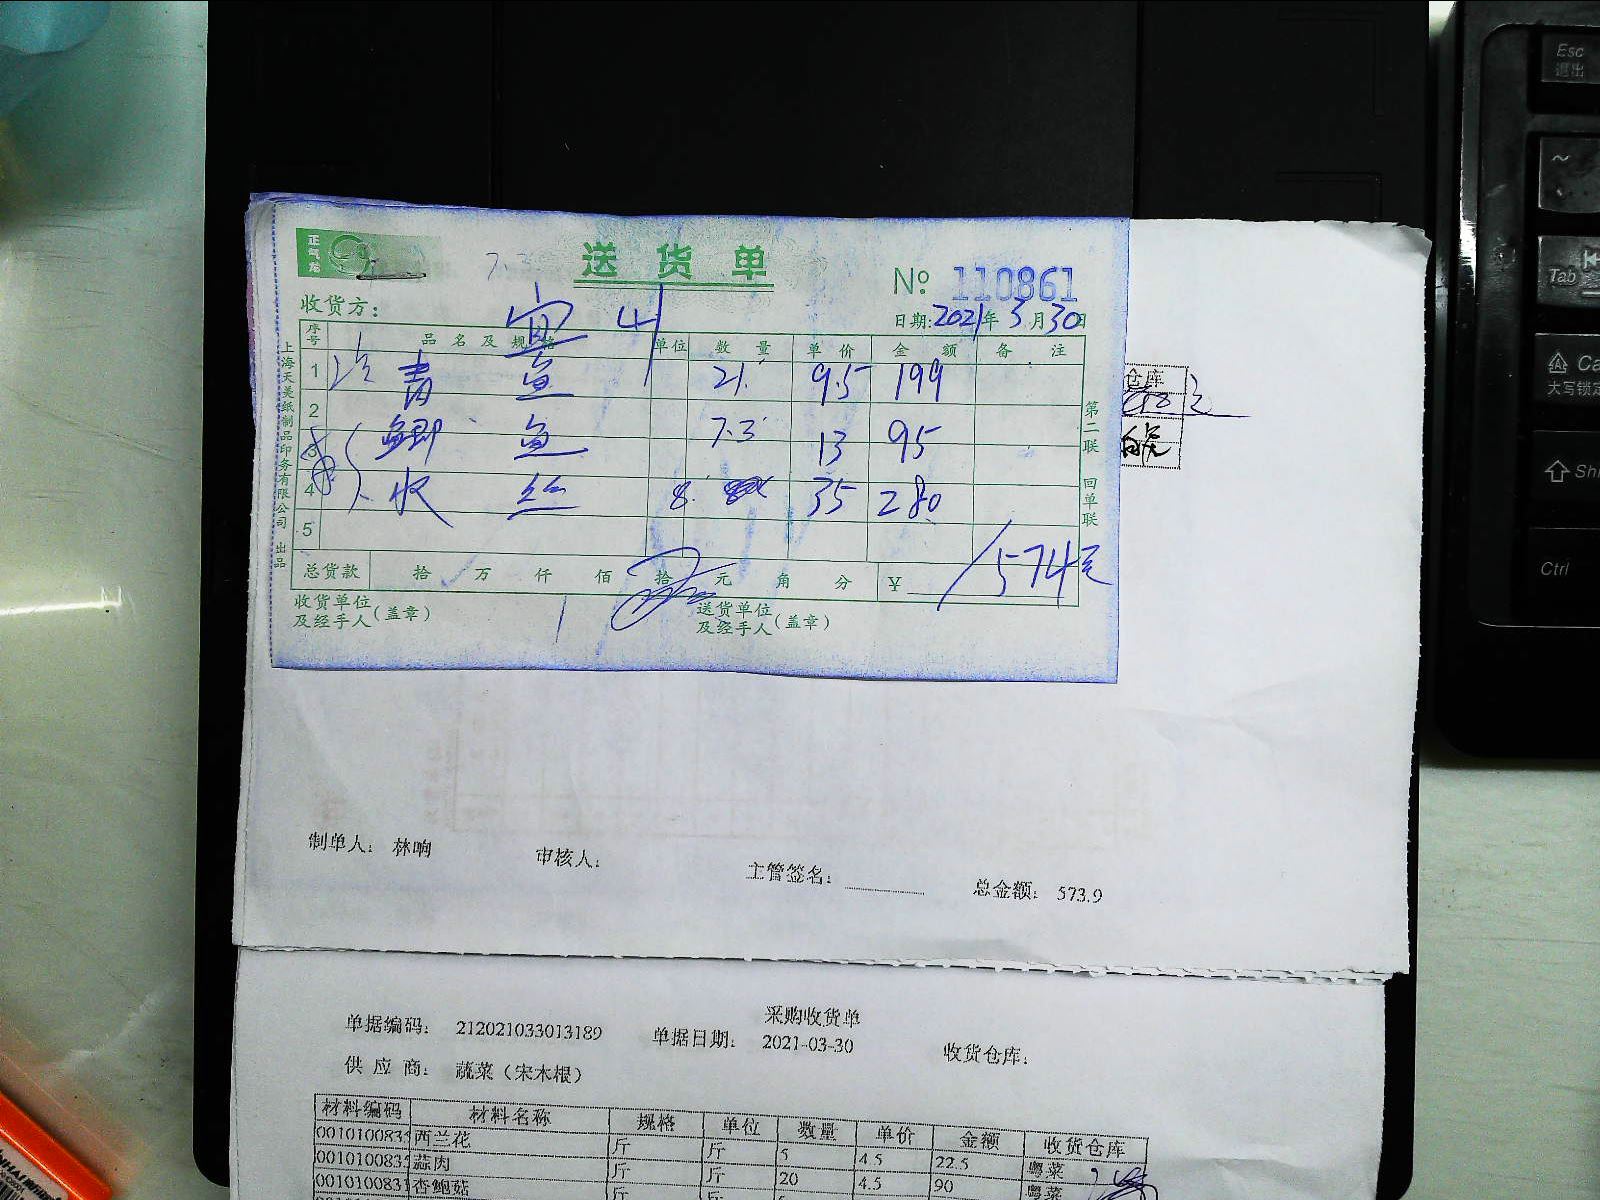 正气龙
7.3
送货单
No 110861
收货方：
宜 4
日期: 2021年3月30日
序号 品名及规格 单位 数量 单价 金额 备注
1 青 鱼 21. 9.5 199
2 鲫 鱼 7.3 13 95
3
4 收 丝 8. 35 280
5
总货款 拾 万 仟 佰 拾 元 角 分 ¥ 574元
收货单位及经手人(盖章)
送货单位及经手人(盖章)
上海天美纸制品印务有限公司 出品
第二联 回单联
仓库
制单人： 林响 审核人： 主管签名： 总金额： 573.9
采购收货单
单据编码： 212021033013189 单据日期： 2021-03-30 收货仓库：
供应商： 蔬菜（宋木根）
材料编码 材料名称 规格 单位 数量 单价 金额 收货仓库
001010083 西兰花 斤 斤 5 4.5 22.5 粤菜
001010083 蒜肉 斤 斤 20 4.5 90 粤菜
001010083 杏鲍菇 斤 斤
Esc
退出
~
Tab
Ca
大写锁定
Shi
Ctrl